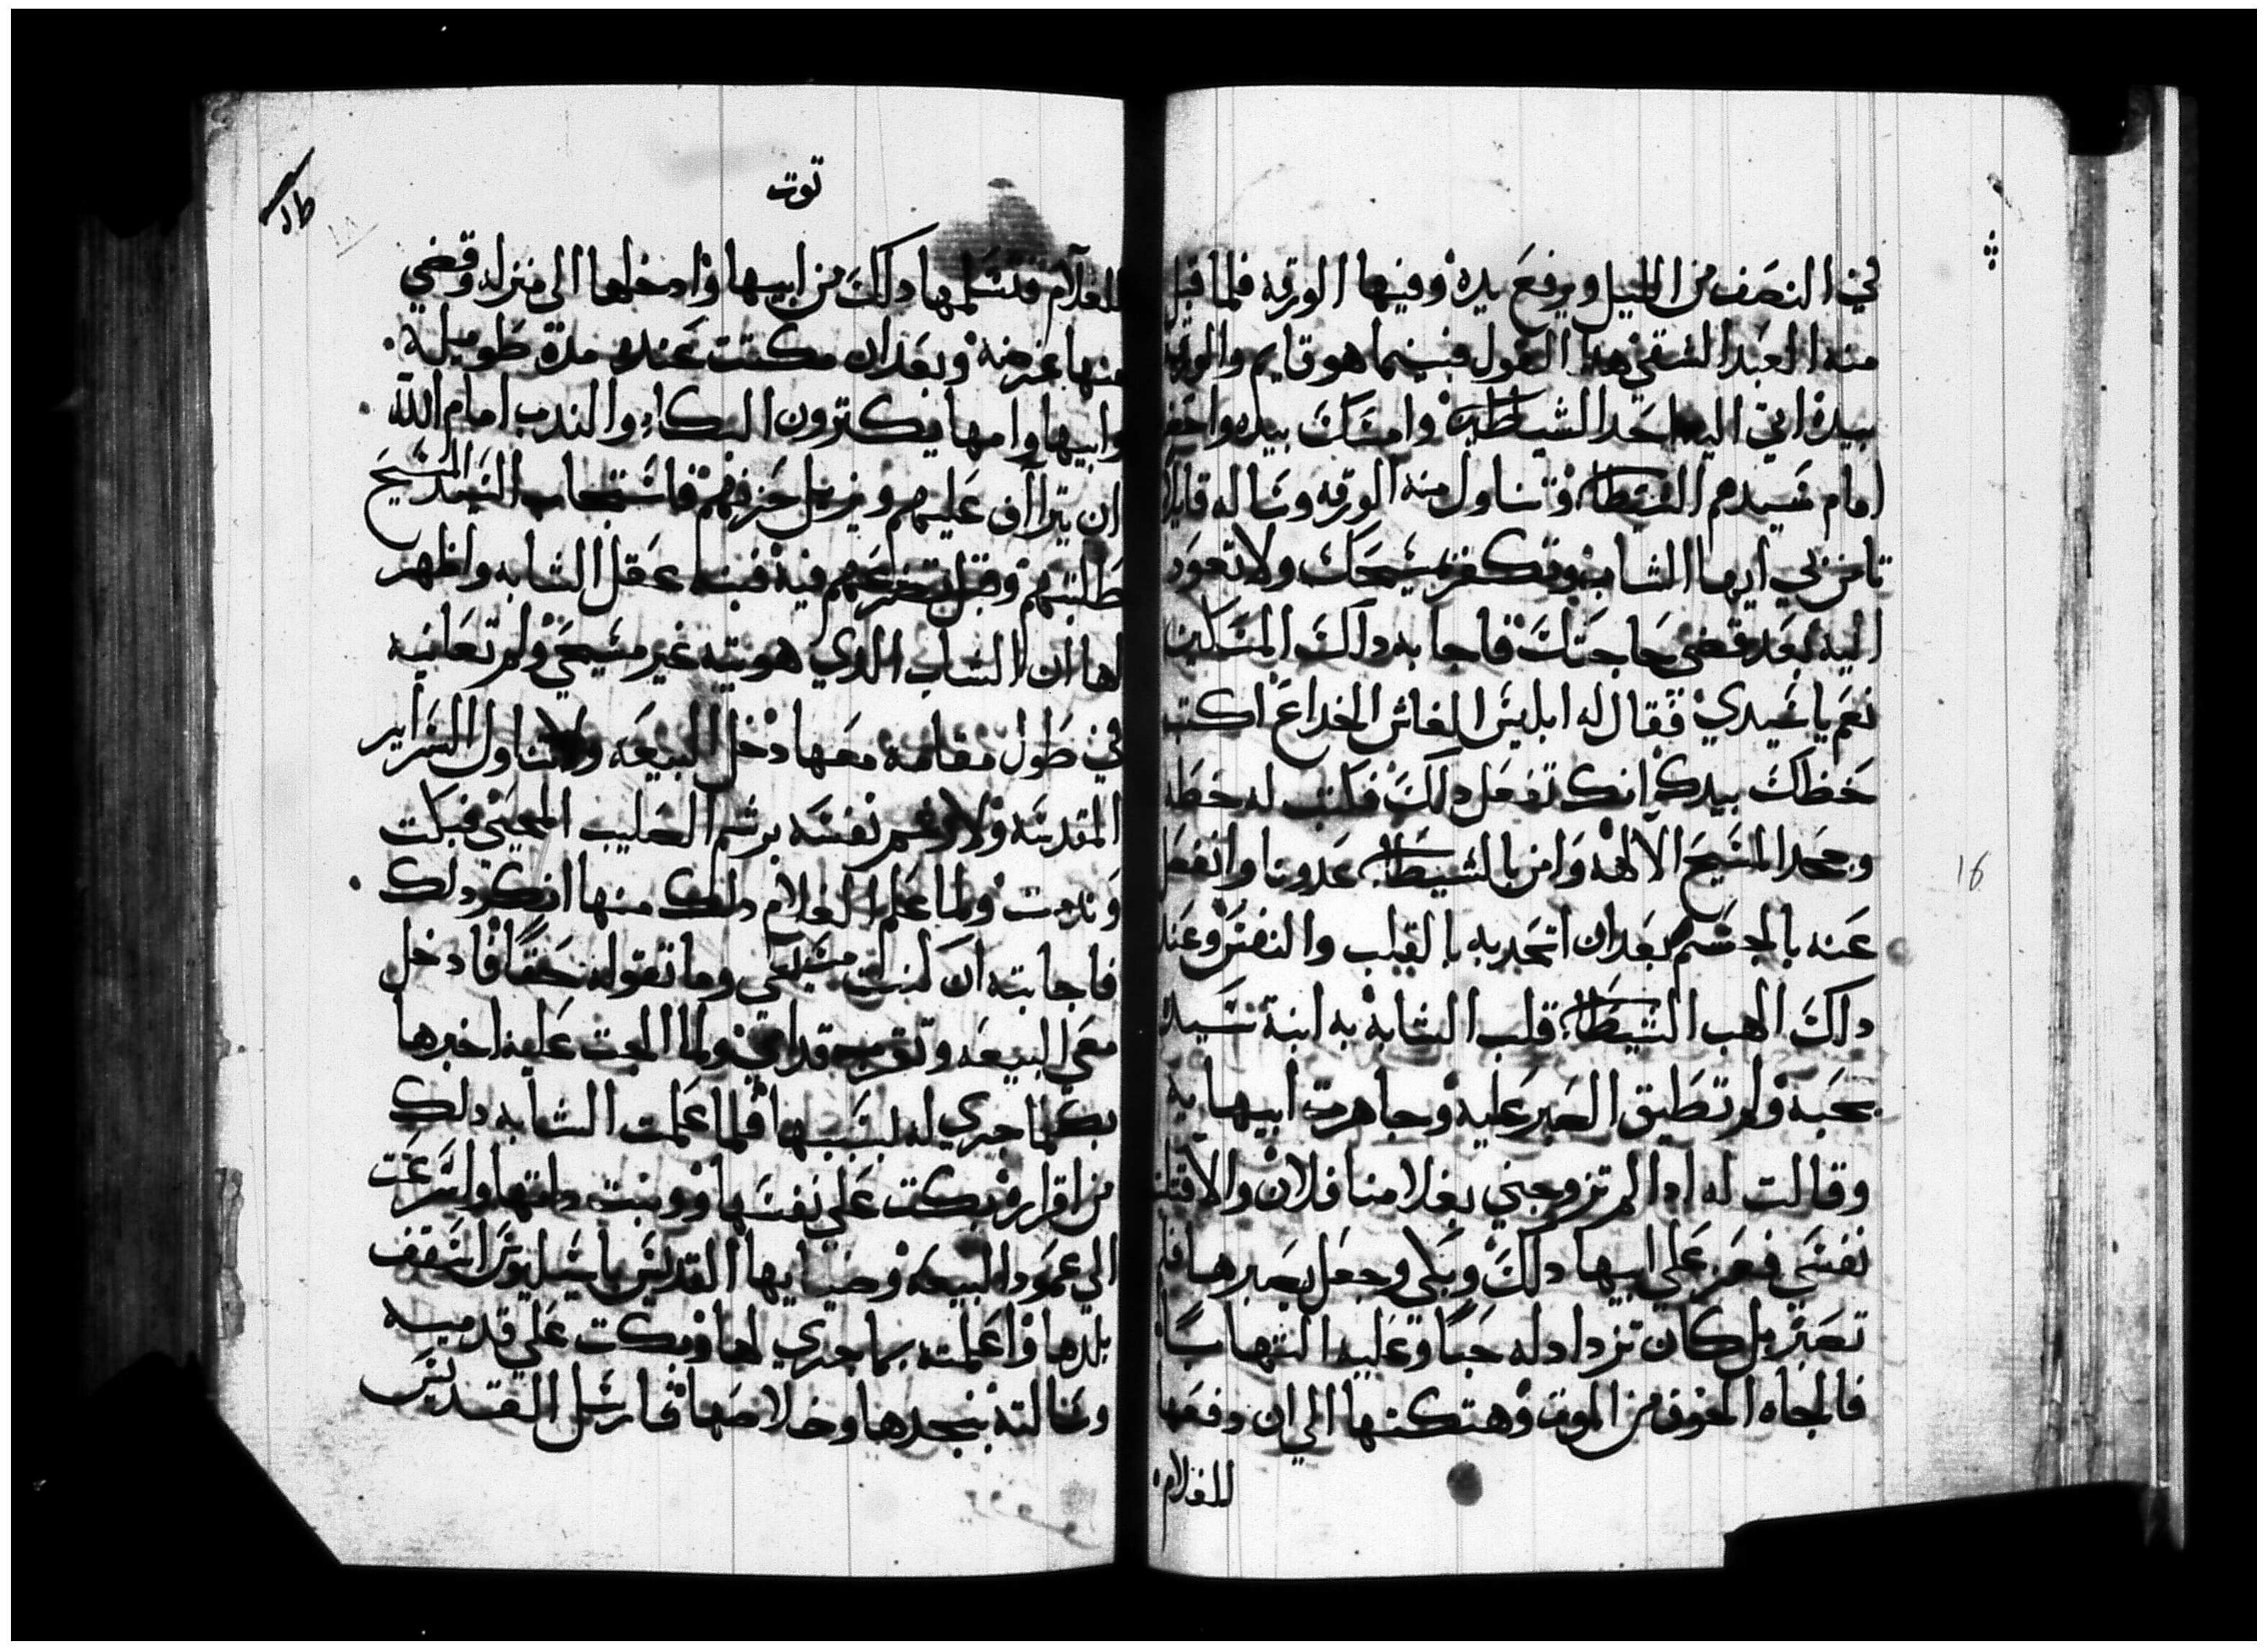 في النصف من الليل ويرفع يده وفيها الورقه فلما قبل
منه العبد الشقي هدا القول فبينما هو قايم والورقه
بيده اتي اليه احد الشياطين وامسك بيده واحضر
امام سيدهم الشيطان وتناول منه الورقه وساله قايلا
تامن بي ايها الشاب وتكفر بمسيحك ولا تعود
اليه بعد قضي حاجتك فاجابه داك المسكين
نعم يا سيدي فقال له ابليس الغاش الخداع اكتب
خطك بيدك انك تفعل دلك فكتب له خطه
وجحد المسيح الالاه وامن بالشيطان عدونا وانفصل
عنه بالجسم بعد ان اتحد به بالقلب والنفس وعند
داك الهب الشيطان قلب الشابه به ابنة سيده
بمحبه ولم تطيق الصبر عليه وجاهرت ابيها به
وقالت له ادا لم تزوجني بغلامنا فلان والا قتلت
نفسي فعز علي ابيها دلك وبكي وجعل يصبرها فلم
تصبر بل كان تزداد له حبا وعليه التهابا
فالجاه الخوف من الموت وهتكتها الي ان دفعها
للغلام
توت
للغلام فتسلمها دلك من ابيها وادخلها الى منزله وقضي
منها غرضه وبعد ان مكتت عنده مدة طويلة
وابيها وامها يكترون البكاء والندب امام الله
ان يتراف عليهم ويزيل حزنهم فاستجاب السيد المسيح
طلبتهم وقبل تضرعهم فيه فنبه عقل الشابه واظهر
لها ان الشاب الدي هويته غير مسيحي ولم تعاينه
في طول مقامه معها دخل البيعه ولا تناول السراير
المقدسه ولا رشم نفسه برشم الصليب المحيي فبكت
وندمت ولما علم الغلام دلك منها انكر دلك
فاجابته ان كنت مسيحي وما تقوله حقا فادخل
معي البيعه وتقرب قدامي ولما الجت عليه اخبرها
بكلما جري له بسببها فلما علمت الشابه دلك
من اقراره بكت علي نفسها ووبخت داتها واسرعت
الي عمود البيعه وضيايها القديس باسيليوس اسقف
بلدها واعلمته بما جري لها وبكت علي قدميه
وسالته بنجدها وخلاصها فارسل القديس
16